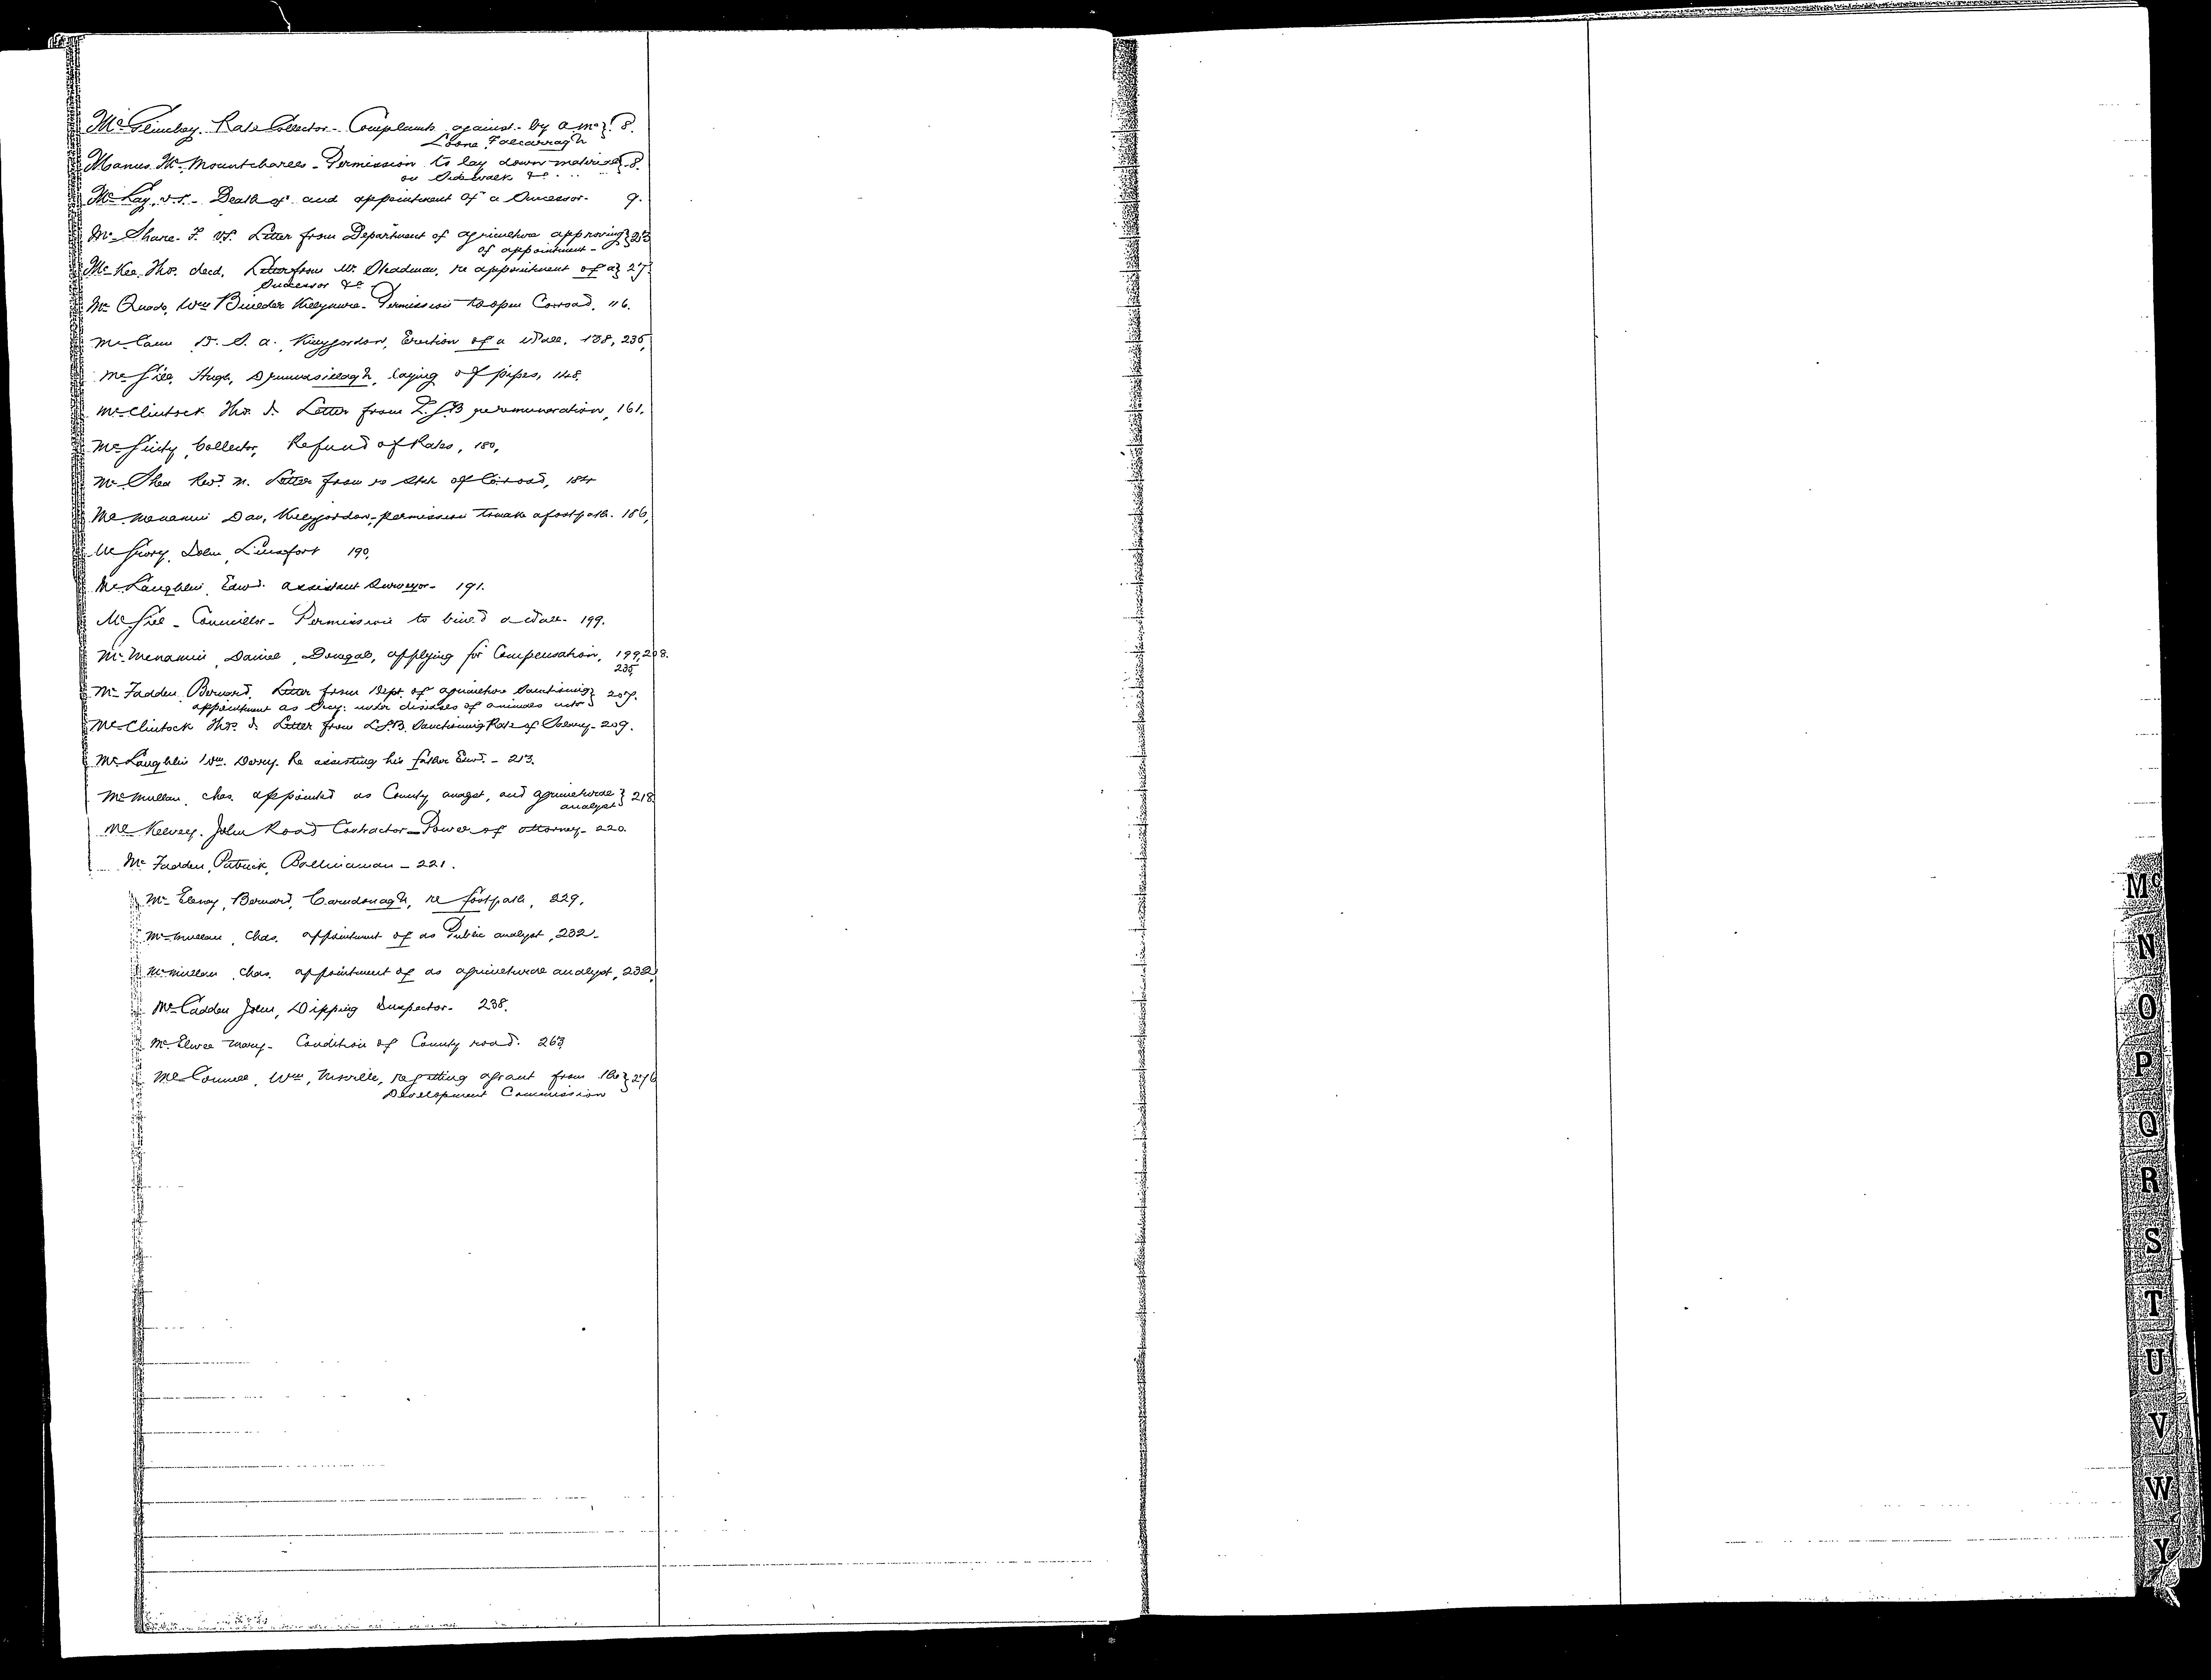 McGlinchey. Rate Collector - Complaints against - by a Mc } 8.
Loone Falcarragh
Manus Mc. Mountcharles - Permission to lay down material } 8.
on Sidewalk &c.
McKay, V.S. - Death of and appointment of a Successor - 9.
Mc Shane. F. V.S. Letter from Department of agriculture approving }
of appointment -
McKee, Thos. decd. Letter from Mr. Steadman, re appointment of a } 27.
Successor &c
Mc Quade, Wm Builder Killymore - Permission to open Co. road, 116.
McCann D. S. A., Killygordon, Erection of a Wall. 138, 235,
McGill, Hugh, Drumnasillagh, laying of pipes, 148.
McClintock Thos. J. Letter from L.G.B re remuneration, 161.
McGinty, Collector, Refund of Rates, 180,
Mc Shea Revd. M. Letter from re State of Co. road, 184
McMenamin Dan, Killygordon, permission to make a footpath. 186,
McGrory, John, Linsfort 190,
McLaughlin, Edwd. Assistant Surveyor - 191.
McGill - Councillor - Permission to build a Wall - 199.
McMenamin, Daniel, Donegal, applying for Compensation, 199, 208.
235
McFadden Bernard. Letter from Dept. of agriculture Sanctioning } 207.
appointment as under diseases of animals acts }
McClintock Thos. J. Letter from L.G.B. Sanctioning Rate of Salary - 209.
McLaughlin Wm. Derry. Re assisting his father Edwd. - 213.
McMullan, Chas. appointed as County analyst, and agricultural } 218
analyst }
McKelvey. John Road Contractor - Power of attorney - 220.
McFadden, Patrick, Ballinaman - 221.
McEleney, Bernard, Carndonagh, re footpath, 229.
McMullan, Chas. appointment of as Public analyst, 232.
McMullan, Chas. appointment of as agricultural analyst, 232,
McCadden John, Dipping Inspector - 238.
McElwee Mary - Condition of County road. 263
McConnell, Wm, Moville, re getting a grant from the } 276
Development Commission
Mc
N
O
P
Q
R
S
T
U
V
W
Y